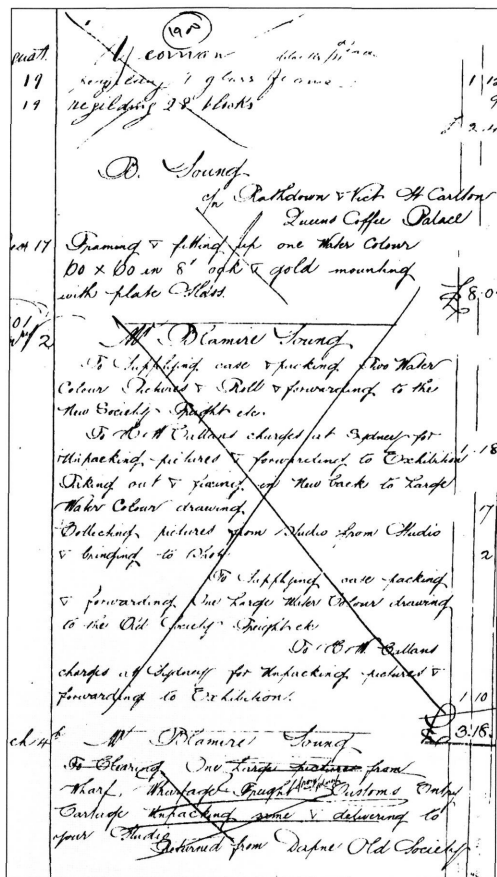 1900
19 regilding 1 glass frame 1
19 regilding 28 blocks
B. Young
c/n Rathdown & Vict St Carlton
Queens Coffee Palace
17 Framing & fitting up one Water Colour
60 x 60 in 8" oak & gold mounting
with plate Glass. £8.0
2 Mr Blamire Young
To Supplying case & packing Two Water
Colour Pictures & Roll & forwarding to the
New Society. Freight etc.
To charges at Sydney for
Unpacking pictures & forwarding to Exhibition 18
Taking out & fixing in New back to Large 17
Water Colour drawing
Collecting pictures from Studio from Studio
& bringing to 2
To Supplying case packing
& forwarding One Large Water Colour drawing
to the Old Society Freight etc
To
charges at Sydney for Unpacking pictures &
forwarding to Exhibition. 1 10
£ 3.18.
Mr Blamire Young
To Clearing One Large pictures from
Wharf, Wharfage Freight Customs Entry
Cartage Unpacking same & delivering to
your Studio
Returned from Old Society